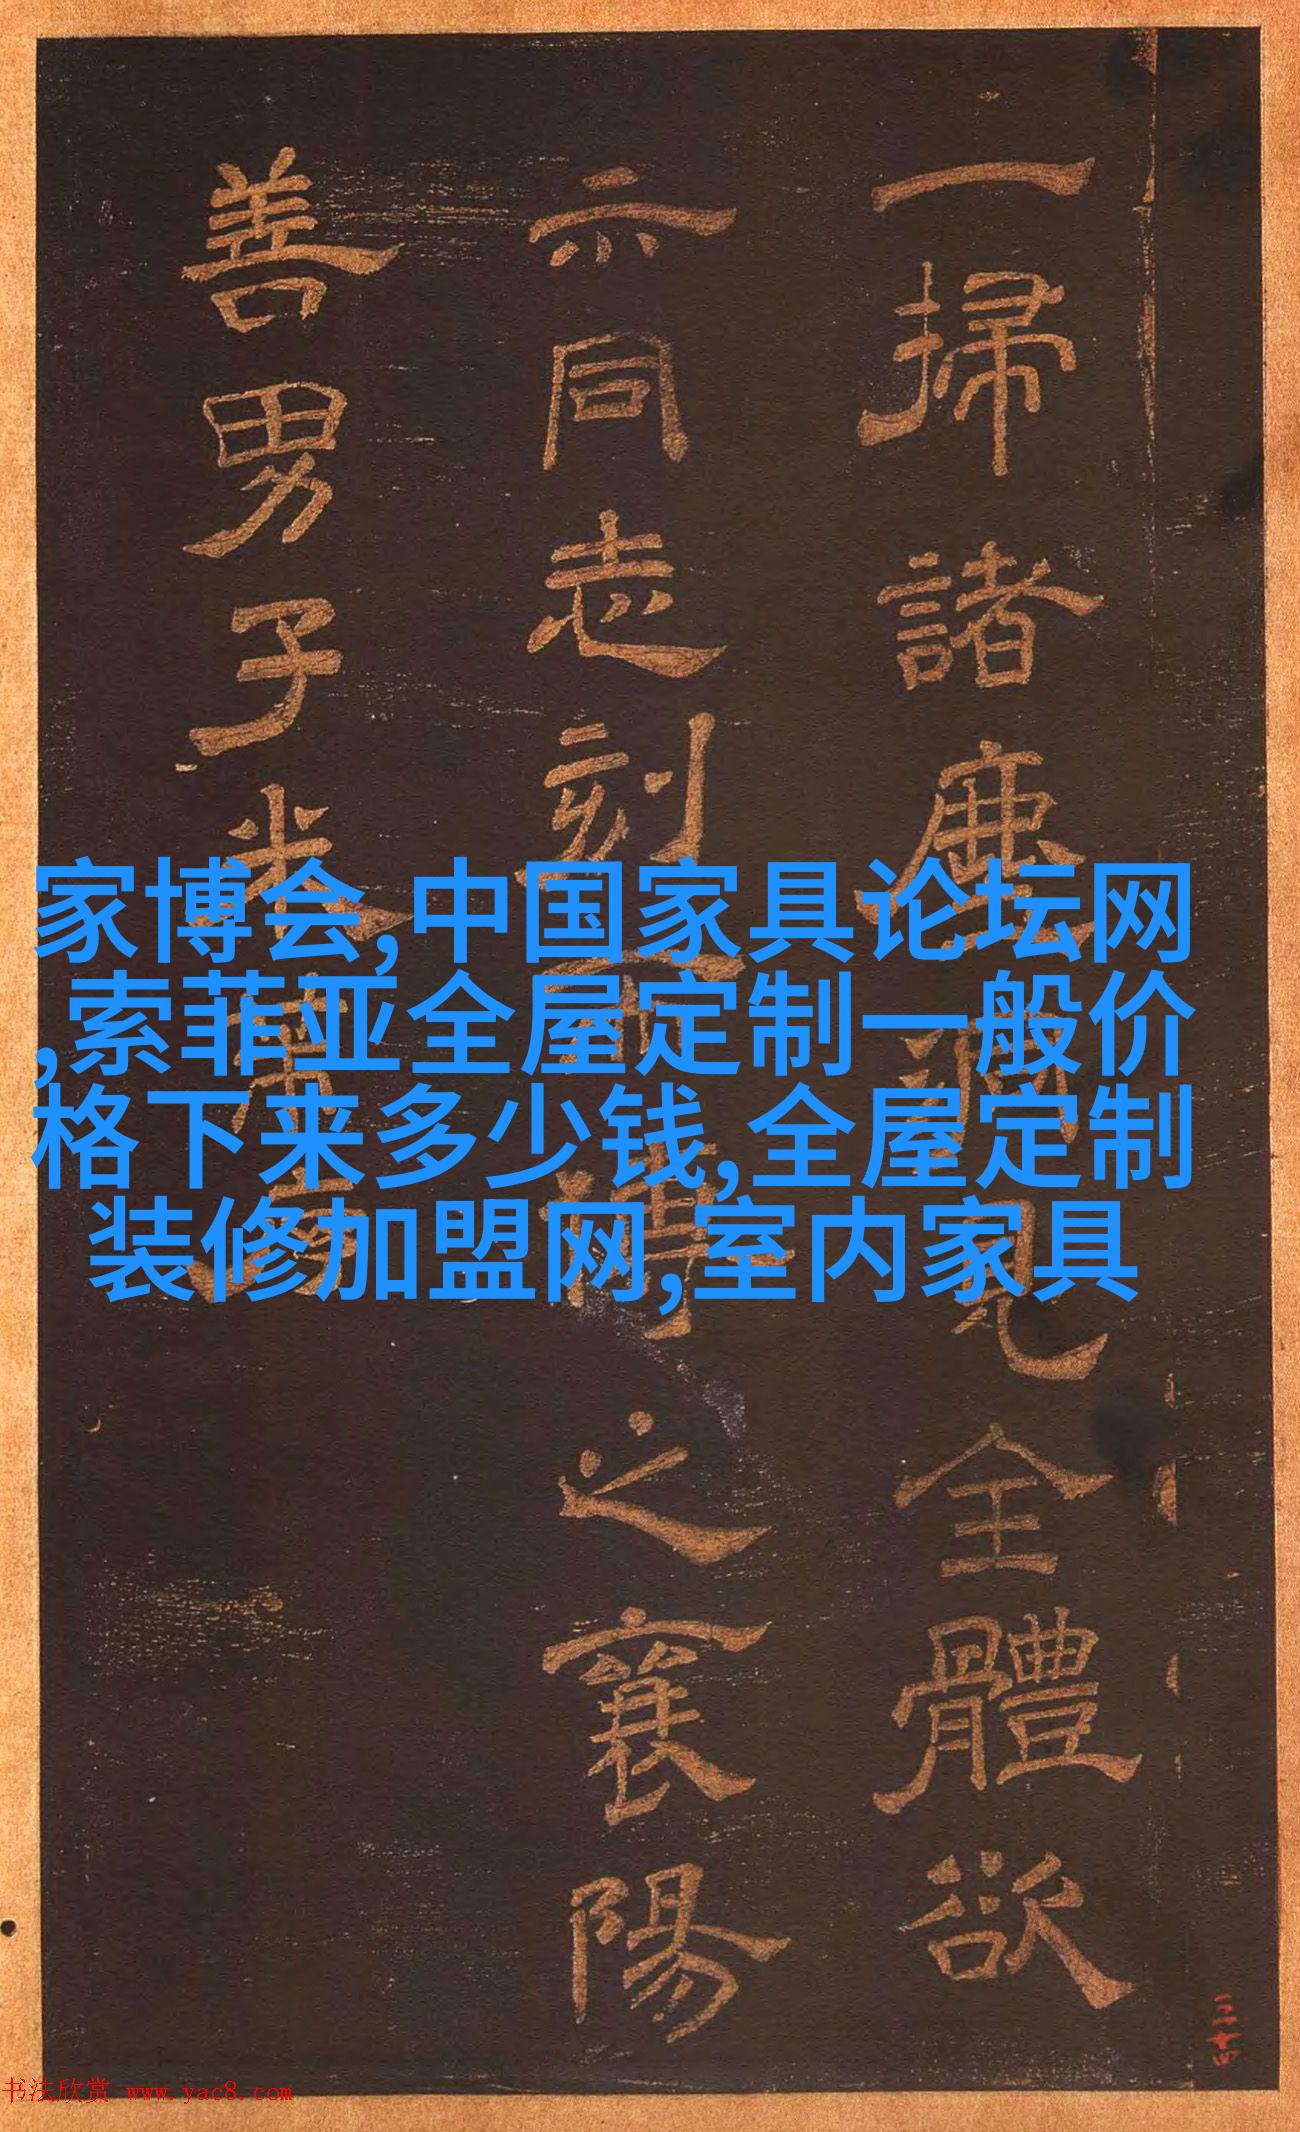 一掃諸塵見全體欲
示同志刻而傳之襄陽
善男子米
家博会,中国家具论坛网
,索菲亚全屋定制一般价
格下来多少钱,全屋定制
装修加盟网,室内家具
三十四
书法欣赏 www.yac8.com